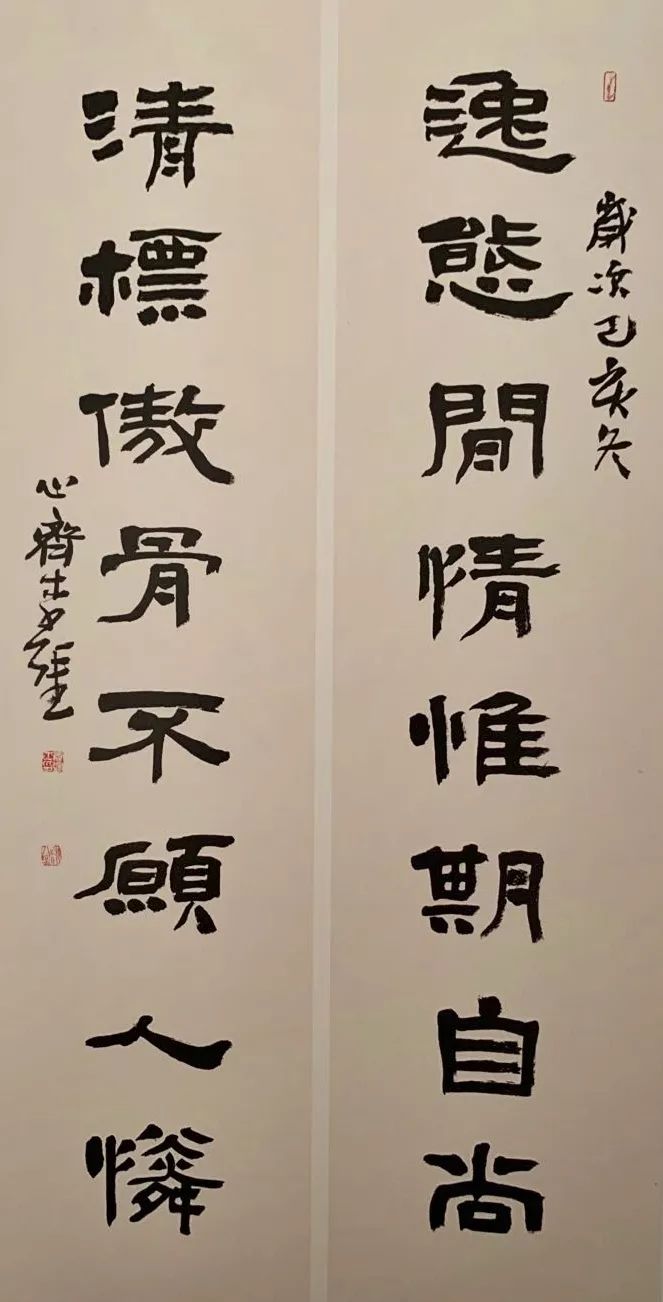 歲次己亥冬
逸態閒情惟期自尚
清標傲骨不願人憐
心齋